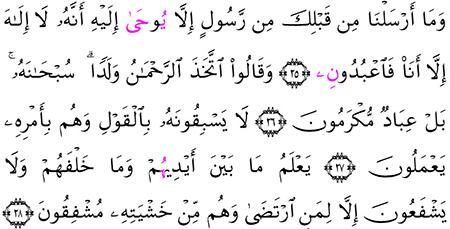 وَمَا أَرْسَلْنَا مِن قَبْلِكَ مِن رَّسُولٍ إِلَّا يُوحَىٰ إِلَيْهِ أَنَّهُۥ لَا إِلَـٰهَ
إِلَّا أَنَا۠ فَٱعْبُدُونِۦ ٢٥ وَقَالُوا۟ ٱتَّخَذَ ٱلرَّحْمَـٰنُ وَلَدًا ۗ سُبْحَـٰنَهُۥ ۚ
بَلْ عِبَادٌ مُّكْرَمُونَ ٢٦ لَا يَسْبِقُونَهُۥ بِٱلْقَوْلِ وَهُم بِأَمْرِهِۦ
يَعْمَلُونَ ٢٧ يَعْلَمُ مَا بَيْنَ أَيْدِيهُمْ وَمَا خَلْفَهُمْ وَلَا
يَشْفَعُونَ إِلَّا لِمَنِ ٱرْتَضَىٰ وَهُم مِّنْ خَشْيَتِهِۦ مُشْفِقُونَ ٢٨